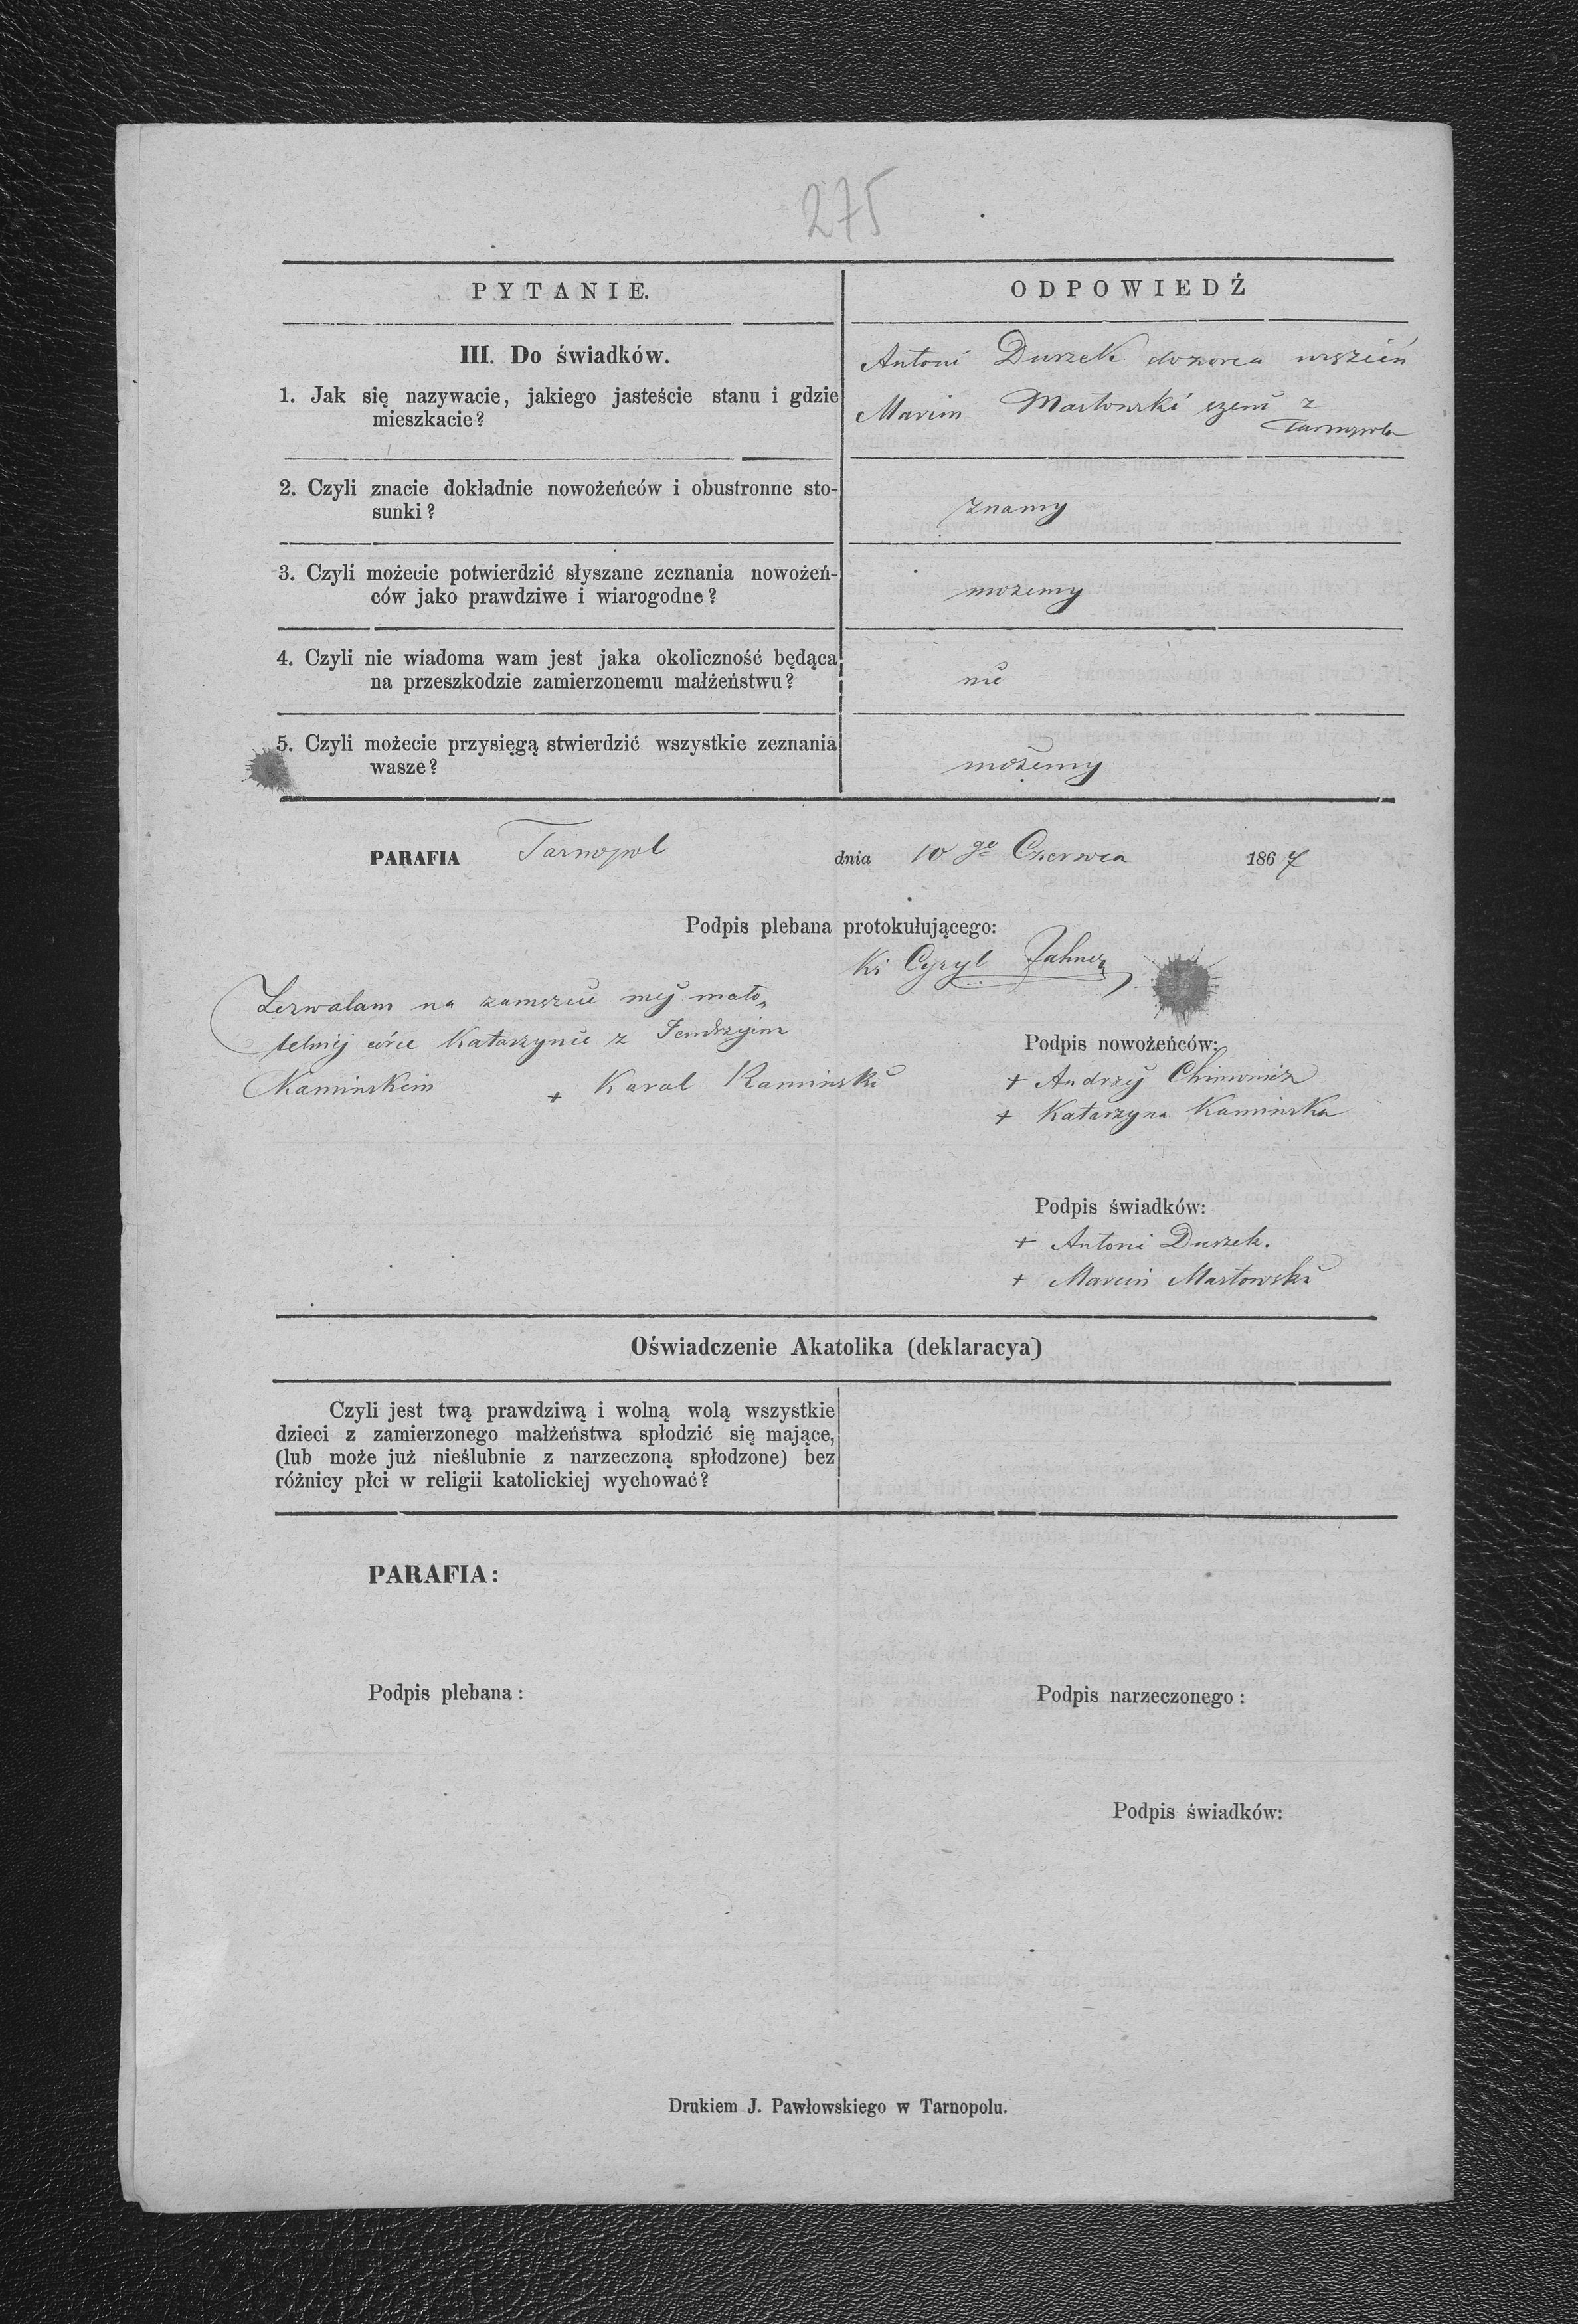 275
PYTANIE.
ODPOWIEDŹ
III. Do świadków.
1. Jak się nazywacie, jakiego jasteście stanu i gdzie
mieszkacie?
Antoni Duszek dozorca
Marcin Martowski z
Tarnopola
2. Czyli znacie dokładnie nowożeńców i obustronne sto-
sunki?
znamy
3. Czyli możecie potwierdzić słyszane zeznania nowożeń-
ców jako prawdziwe i wiarogodne?
możemy
4. Czyli nie wiadoma wam jest jaka okoliczność będąca
na przeszkodzie zamierzonemu małżeństwu?
nie
5. Czyli możecie przysięgą stwierdzić wszystkie zeznania
wasze?
możemy
PARAFIA Tarnopol dnia 10 go Czerwca 1867
Podpis plebana protokułującego:
Ks Cyryl
Zezwalam na mej mało-
letniej córce Katarzynie z
Kamińskim + Karol Kaminski
Podpis nowożeńców:
+ Andrzej
+ Katarzyna Kaminska
Podpis świadków:
+ Antoni Duszek.
+ Marcin Martowski
Oświadczenie Akatolika (deklaracya)
Czyli jest twą prawdziwą i wolną wolą wszystkie
dzieci z zamierzonego małżeństwa spłodzić się mające,
(lub może już nieślubnie z narzeczoną spłodzone) bez
różnicy płci w religii katolickiej wychować?
PARAFIA:
Podpis plebana:
Podpis narzeczonego:
Podpis świadków:
Drukiem J. Pawłowskiego w Tarnopolu.